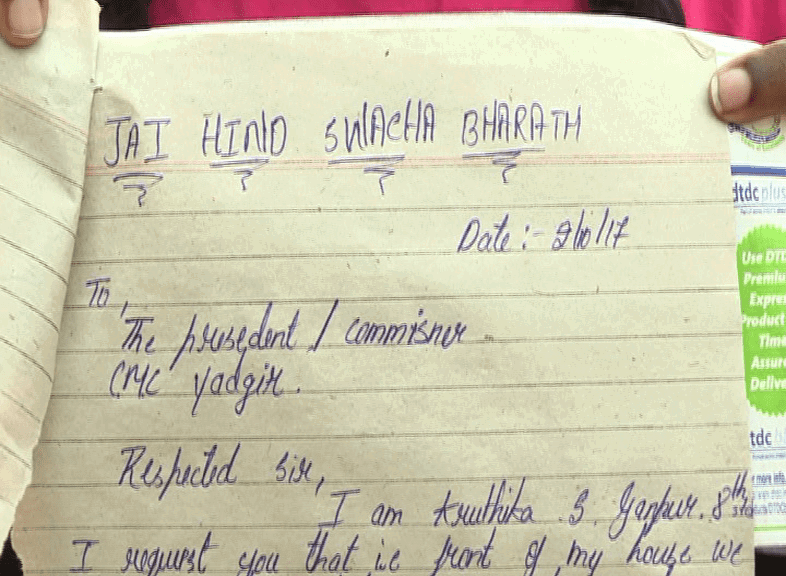 JAI HIND SWACHA BHARATH
Date :- 2/10/17
To,
The presedent / commisner
CMC yadgir.
Respected sir,
I am kruthika S. Ganpur. 8th
I request you that i.e front of my house we
dtdc plus
Use DTD
Premiu
Expres
Product
Time
Assure
Delive
tdc